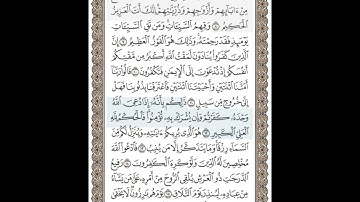 مِنْ ءَابَآئِهِمْ وَأَزْوَٰجِهِمْ وَذُرِّيَّٰتِهِمْ إِنَّكَ أَنتَ ٱلْعَزِيزُ
ٱلْحَكِيمُ ٨ وَقِهِمُ ٱلسَّيِّـَٔاتِ وَمَن تَقِ ٱلسَّيِّـَٔاتِ
يَوْمَئِذٍ فَقَدْ رَحِمْتَهُۥ وَذَٰلِكَ هُوَ ٱلْفَوْزُ ٱلْعَظِيمُ ٩
إِنَّ ٱلَّذِينَ كَفَرُوا۟ يُنَادَوْنَ لَمَقْتُ ٱللَّهِ أَكْبَرُ مِن مَّقْتِكُمْ
أَنفُسَكُمْ إِذْ تُدْعَوْنَ إِلَى ٱلْإِيمَٰنِ فَتَكْفُرُونَ ١٠ قَالُوا۟ رَبَّنَآ
أَمَتَّنَا ٱثْنَتَيْنِ وَأَحْيَيْتَنَا ٱثْنَتَيْنِ فَٱعْتَرَفْنَا بِذُنُوبِنَا فَهَلْ
إِلَىٰ خُرُوجٍ مِّن سَبِيلٍ ١١ ذَٰلِكُم بِأَنَّهُۥٓ إِذَا دُعِىَ ٱللَّهُ
وَحْدَهُۥ كَفَرْتُمْ وَإِن يُشْرَكْ بِهِۦ تُؤْمِنُوا۟ فَٱلْحُكْمُ لِلَّهِ
ٱلْعَلِىِّ ٱلْكَبِيرِ ١٢ هُوَ ٱلَّذِى يُرِيكُمْ ءَايَٰتِهِۦ وَيُنَزِّلُ لَكُم مِّنَ
ٱلسَّمَآءِ رِزْقًا وَمَا يَتَذَكَّرُ إِلَّا مَن يُنِيبُ ١٣ فَٱدْعُوا۟ ٱللَّهَ
مُخْلِصِينَ لَهُ ٱلدِّينَ وَلَوْ كَرِهَ ٱلْكَٰفِرُونَ ١٤ رَفِيعُ
ٱلدَّرَجَٰتِ ذُو ٱلْعَرْشِ يُلْقِى ٱلرُّوحَ مِنْ أَمْرِهِۦ عَلَىٰ مَن يَشَآءُ
مِنْ عِبَادِهِۦ لِيُنذِرَ يَوْمَ ٱلتَّلَاقِ ١٥ يَوْمَ هُم بَٰرِزُونَ لَا يَخْفَىٰ